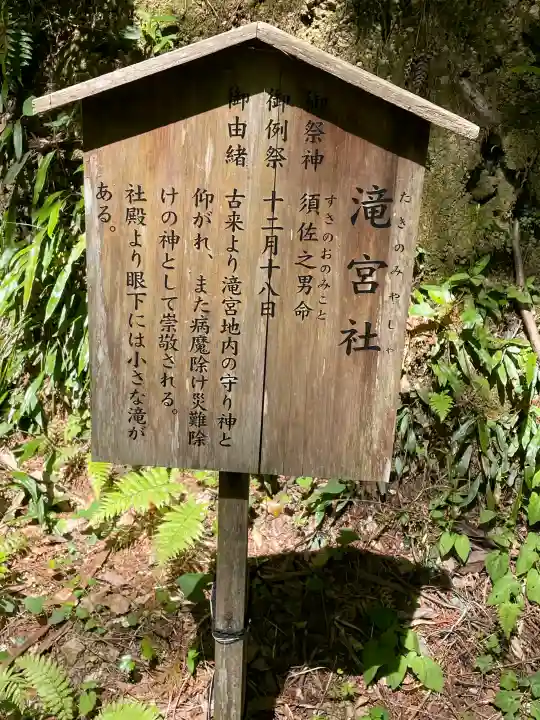 滝宮社
たきのみやしゃ
御祭神 須佐之男命
すさのおのみこと
御例祭 十二月十八日
御由緒 古来より滝宮地内の守り神と
仰がれ、また病魔除け災難除
けの神として崇敬される。
社殿より眼下には小さな滝が
ある。